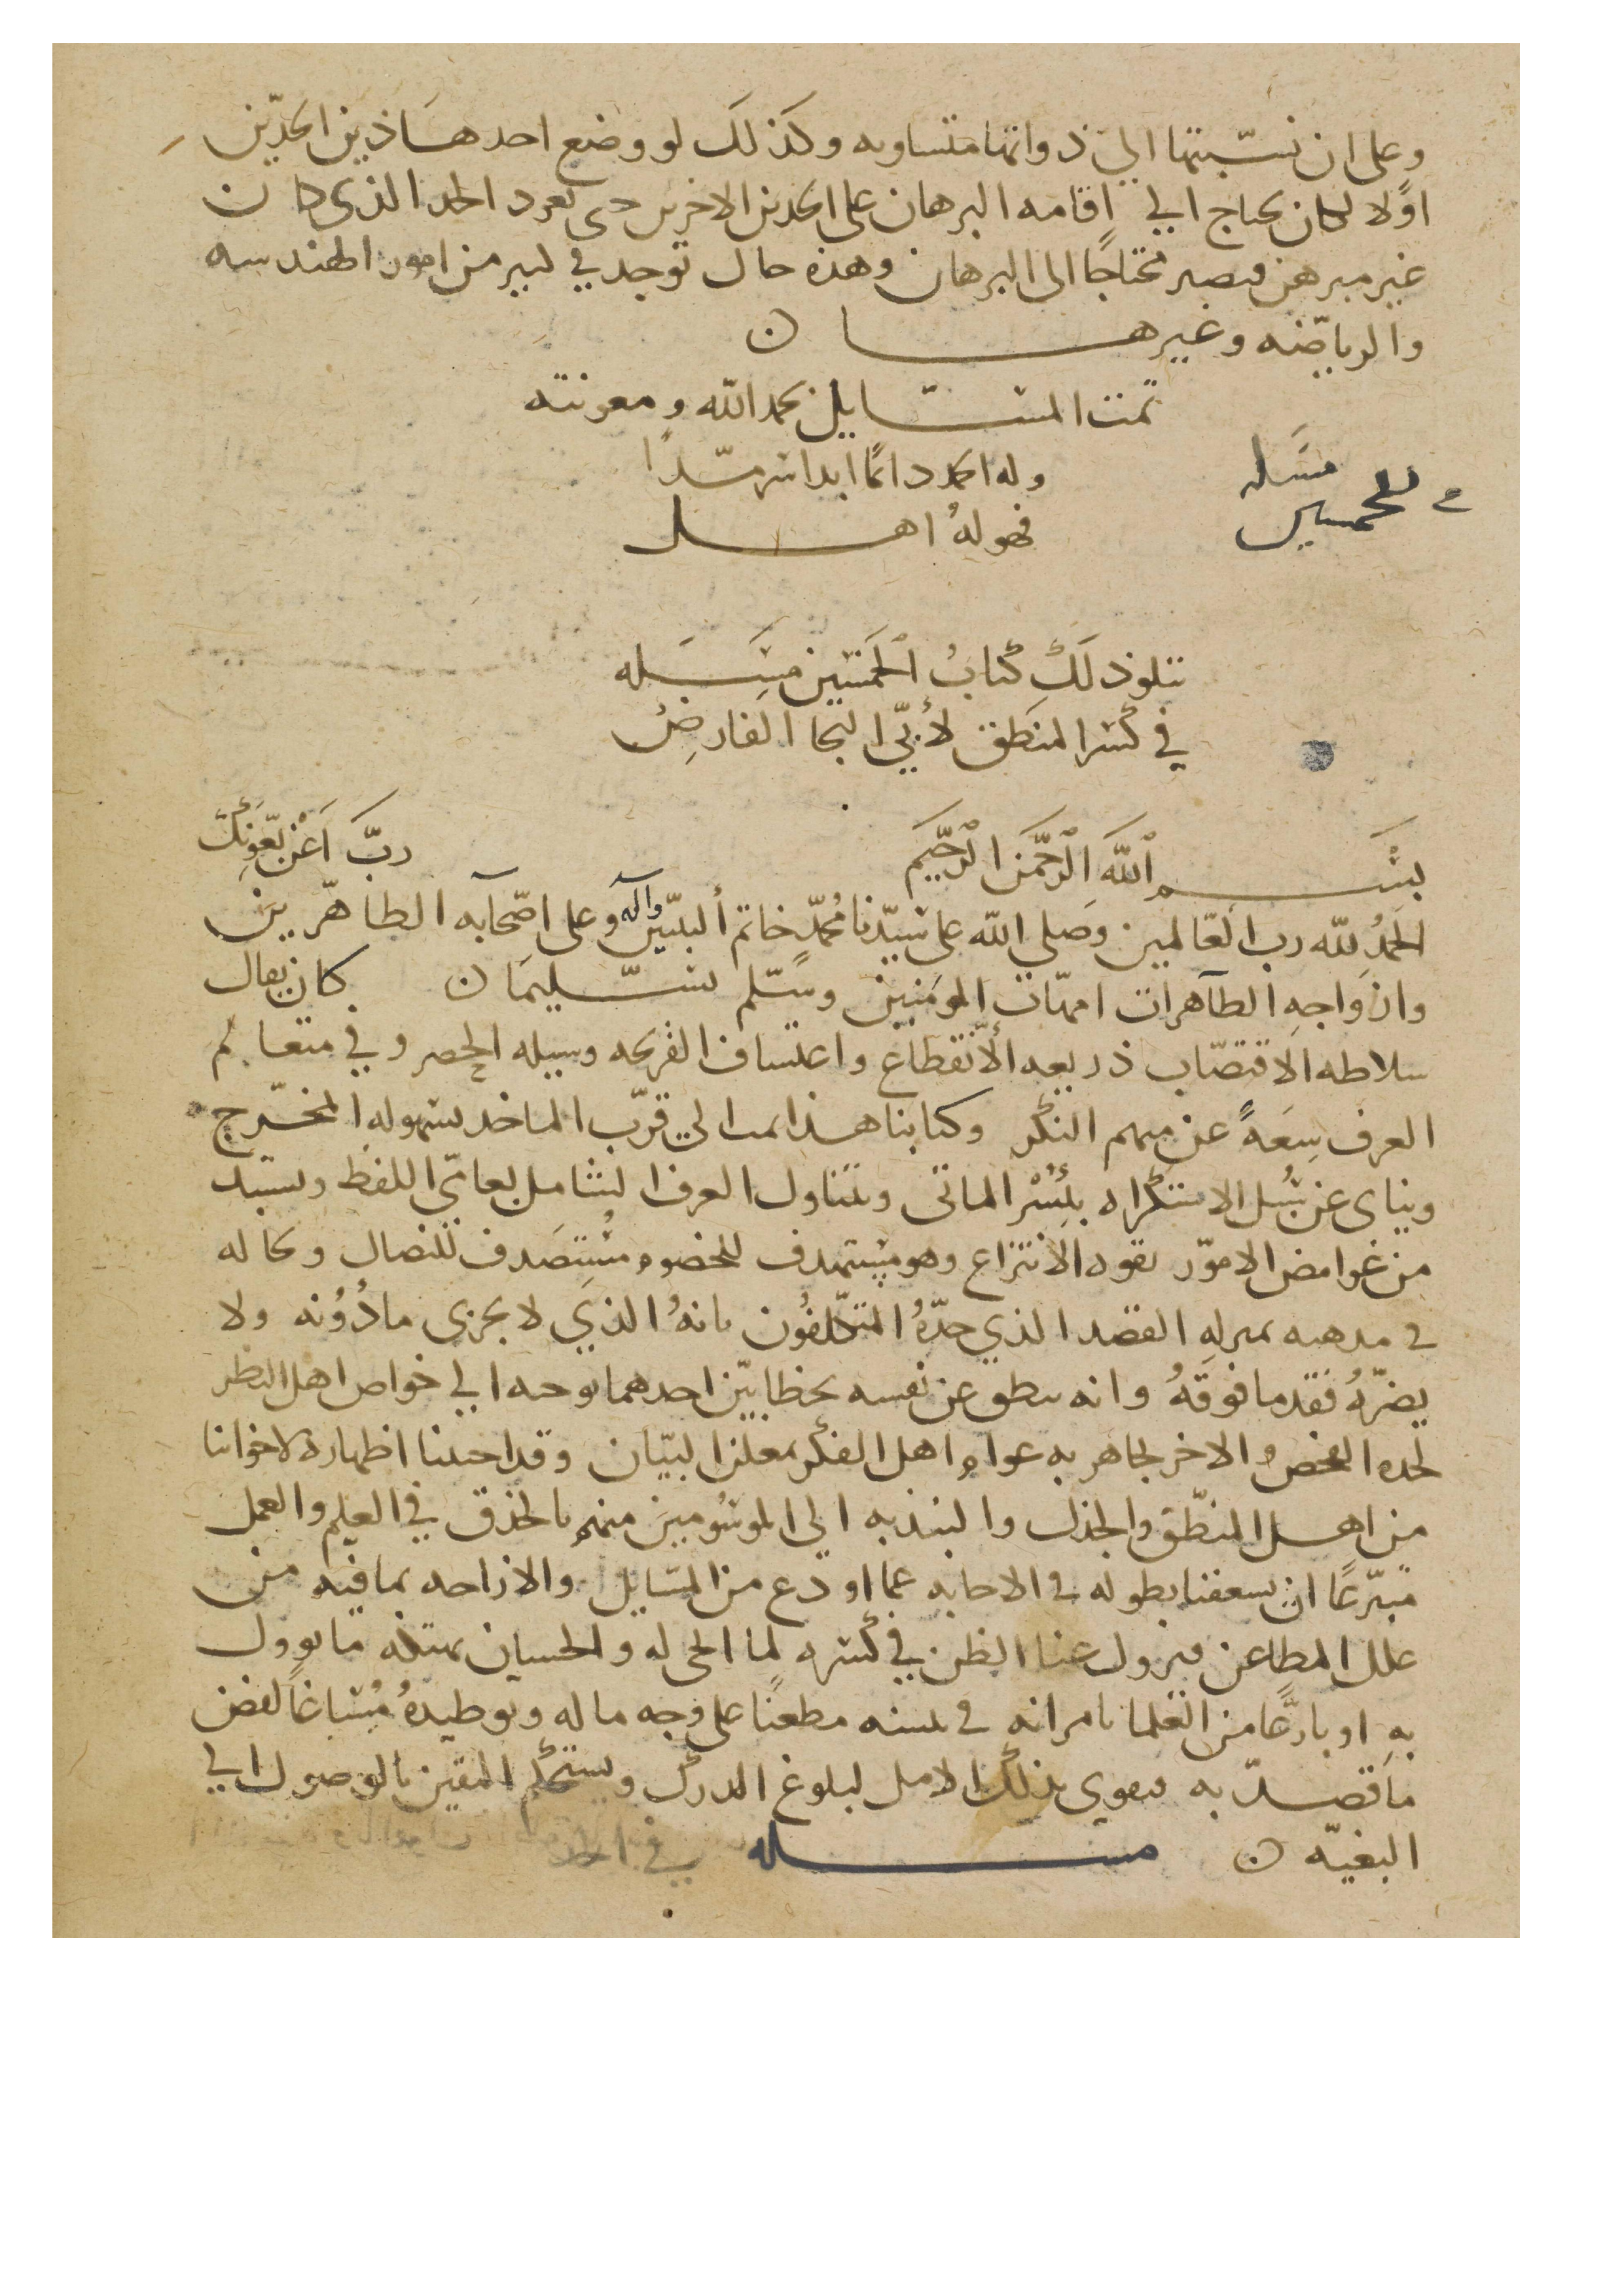 وعلى ان نسبتها الى ذواتها متساويه وكذلك لو وضع احد هاذين الحدين
اولا لكان يحتاج الى اقامه البرهان على الحدين الاخرين حتى يعود الحد الذي كان
غير مبرهن فيصير محتاجا الى البرهان وهذه حال توجد في كثير من امور الهندسه
والرياضيه وغيرها ن
تمت المسايل بحمد الله ومعونته
وله الحمد دائما ابدا سرمدا
فهو له اهل
مسله
الخمسين
تتلو ذلك كتاب الخمسين مسله
في كسر المنطق لأبي النجا الفارض
بسم الله الرحمن الرحيم رب اعن بعونك
الحمد لله رب العالمين وصلى الله على سيدنا محمد خاتم النبيين وآله وعلى اصحابه الطاهرين
وازواجه الطاهرات امهات المومنين وسلم تسليما ن كان يقال
سلاطه الاقتضاب ذريعه الانقطاع واعتساف القريحه وسيله الحصر وفي متعالم
العرف سعة عن مبهم النكر وكتابنا هذا يمت الى قرب الماخذ بسهوله المخرج
ويناى عن سبل الاستكراه بيسر الماتى ويتناول العرف الشامل بعامي اللفظ ويستبد
من غوامض الامور بقوه الانتزاع وهو مستهدف للخصوم مستصدف للنضال وكاله
في مذهبه بمنزله القصد الذي حده المتكلفون بانه الذي لا يجزي ما دونه ولا
يضره فقد ما فوقه وانه ينطق عن نفسه بخطابين احدهما يوجبه الى خواص اهل النظر
لحده الفحص والاخر يجاهر به عوام اهل الفكر بمعلن البيان وقد احببنا اظهاره لاخواننا
من اهل المنطق والجدل والبند به الى الموسومين منهم بالحذق في العلم والعمل
متبرعا ان يسعفنا بطوله في الاجابه عما اودع من المسايل والازاحه بما فيه من
علل المطاعن فيزول عنا الظن في كسره لما الحى له والحسبان ما يوول
به او بارعا من العلما مطعنا على وجه ما له وتوطيده مساغا لغض
ما قصد به فيقوى بذلك الامل لبلوغ الدرك ويستحكم اليقين بالوصول الى
البغيه ن مسله في